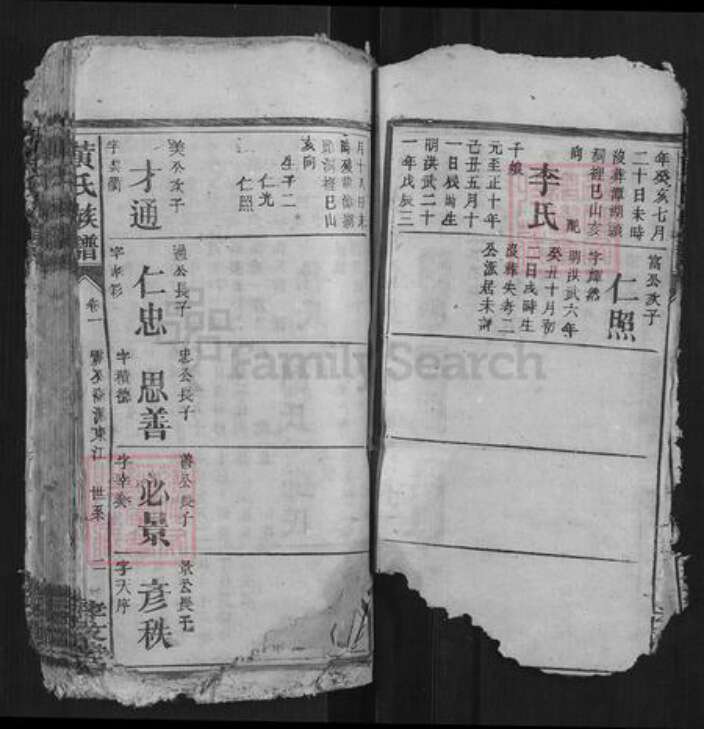 年癸亥七月
二十日未時
沒葬潭湖頭
洞裡巳山亥
向
配
李氏
子娘
元至正十年
己丑五月十
一日辰時生
明洪武二十
一年戊辰三
富公次子
仁照
字輝然
明洪武六年
癸丑十月初
二日戌時生
沒葬失考二
公派居未詳
月十八日未
洞裡巳山
亥向
生子二
仁光
仁照
美公次子
才通
字雲衢
通公長子
仁忠
字孝彰
忠公長子
思善
字積德
善公長子
必景
景公長子
彥秩
字天序
黃氏族譜
卷一
世系
二
FamilySearch